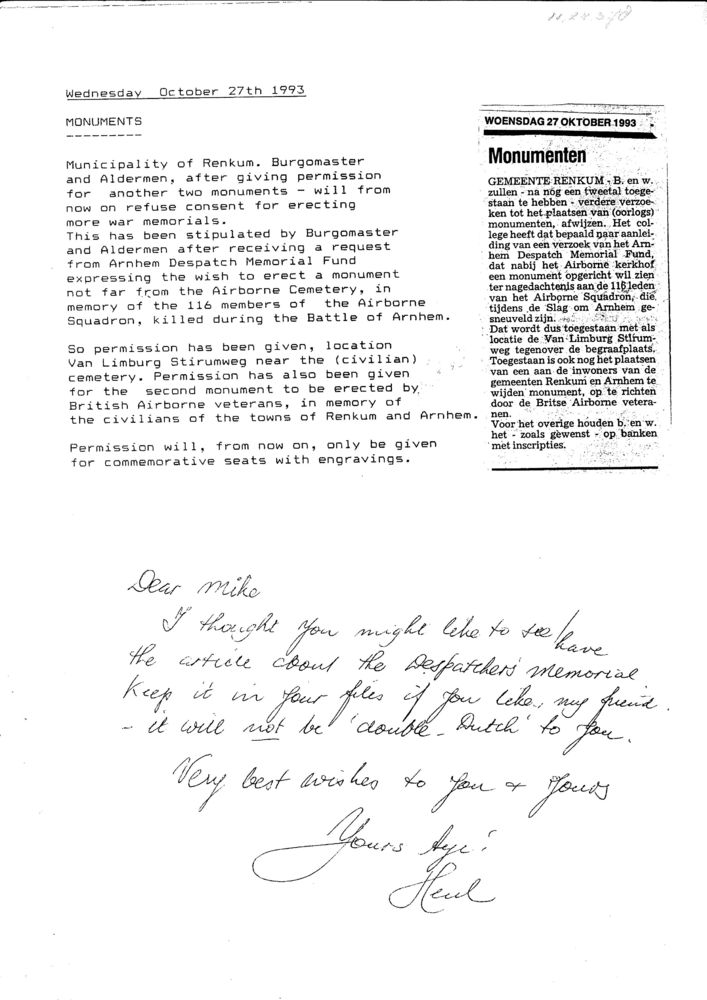 Wednesday October 27th 1993
MONUMENTS
---------
Municipality of Renkum. Burgomaster
and Aldermen, after giving permission
for another two monuments - will from
now on refuse consent for erecting
more war memorials.
This has been stipulated by Burgomaster
and Aldermen after receiving a request
from Arnhem Despatch Memorial Fund
expressing the wish to erect a monument
not far from the Airborne Cemetery, in
memory of the 116 members of the Airborne
Squadron, killed during the Battle of Arnhem.
So permission has been given, location
Van Limburg Stirumweg near the (civilian)
cemetery. Permission has also been given
for the second monument to be erected by
British Airborne veterans, in memory of
the civilians of the towns of Renkum and Arnhem.
Permission will, from now on, only be given
for commemorative seats with engravings.
WOENSDAG 27 OKTOBER 1993
Monumenten
GEMEENTE RENKUM - B. en w.
zullen - na nóg een tweetal toege-
staan te hebben - verdere verzoe-
ken tot het plaatsen van (oorlogs)
monumenten, afwijzen. Het col-
lege heeft dat bepaald naar aanlei-
ding van een verzoek van het Arn-
hem Despatch Memorial Fund,
dat nabij het Airborne kerkhof
een monument opgericht wil zien
ter nagedachtenis aan de 116 leden
van het Airborne Squadron, die
tijdens de Slag om Arnhem ge-
sneuveld zijn.
Dat wordt dus toegestaan met als
locatie de Van Limburg Stirum-
weg tegenover de begraafplaats.
Toegestaan is ook nog het plaatsen
van een aan de inwoners van de
gemeenten Renkum en Arnhem te
wijden monument, op te richten
door de Britse Airborne vetera-
nen.
Voor het overige houden b. en w.
het - zoals gewenst - op banken
met inscripties.
Dear Mike
I thought you might like to see/have
the article about the Despatchers' Memorial
Keep it in your files if you like, my friend.
- it will not be 'double-Dutch' to you.
Very best wishes to you + yours
Yours Aye!